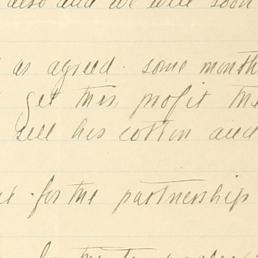 also and we will soon
as agreed. some month
get this profit the
sell his cotton and
for the partnership